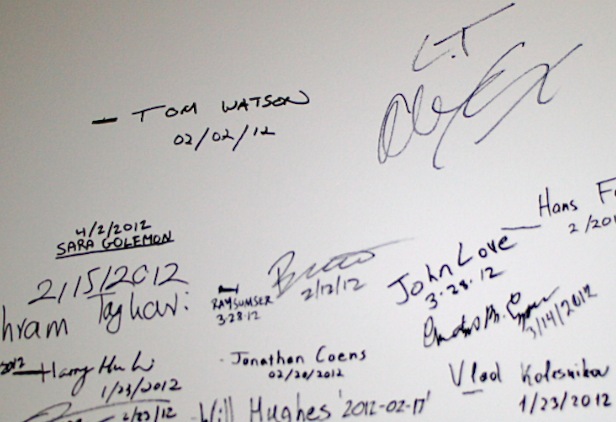 L.T
- TOM WATSON
02/02/12
4/2/2012
SARA GOLEMON
Hans F
2/201
2/15/2012
hram Taghavi
RAY SUMSER
3·28·12
2/12/12
John Love
3·28·12
3/14/2012
2012
Harry Hu Li
1/23/2012
· Jonathan Coens
02/20/2012
Vlad Kolesnikov
1/23/2012
2/23/12
- Will Hughes '2012-02-17'